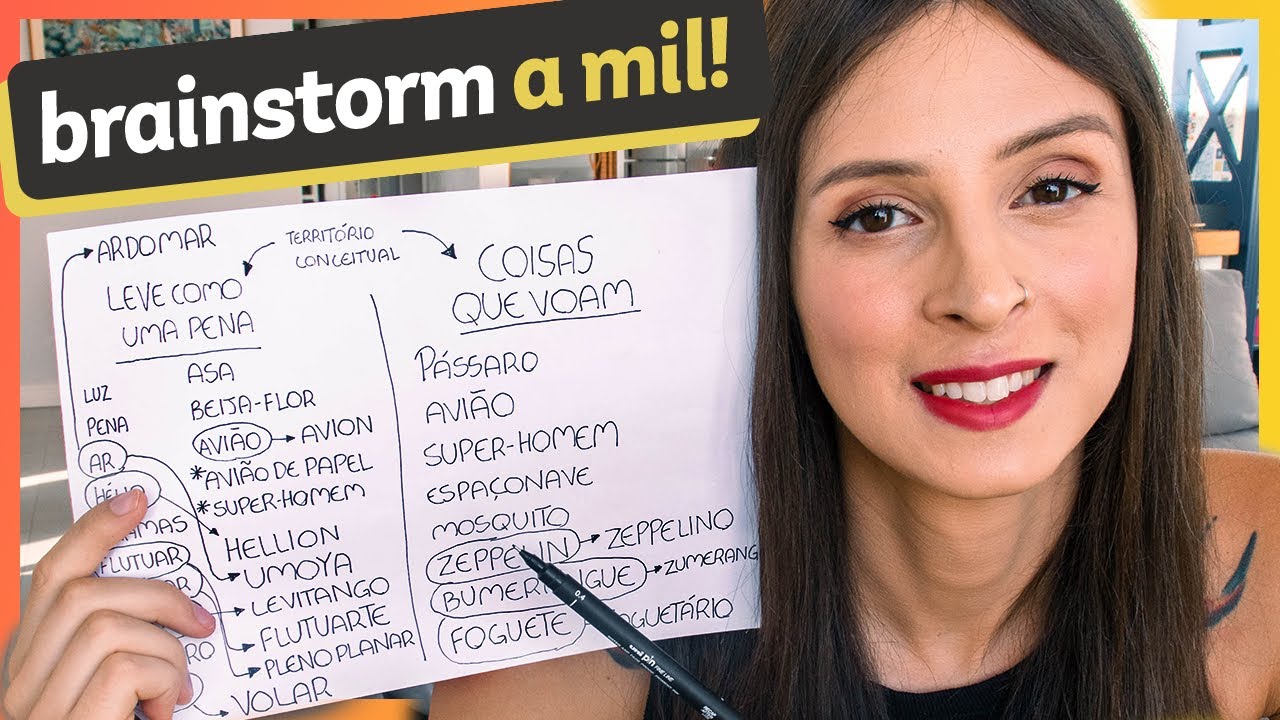 brainstorm a mil!
ARDOMAR
TERRITÓRIO
CONCEITUAL
LEVE COMO
UMA PENA
LUZ
PENA
AR
ASA
BEIJA-FLOR
AVIÃO AVION
*AVIÃO DE PAPEL
*SUPER-HOMEM
FLUTUAR
HELLION
UMOYA
LEVITANGO
FLUTUARTE
PLENO PLANAR
VOLAR
COISAS
QUE VOAM
PÁSSARO
AVIÃO
SUPER-HOMEM
ESPAÇONAVE
MOSQUITO
ZEPPELIN ZEPPELINO
ZUMERANG
FOGUETE
0.4
uni pin FINE LINE